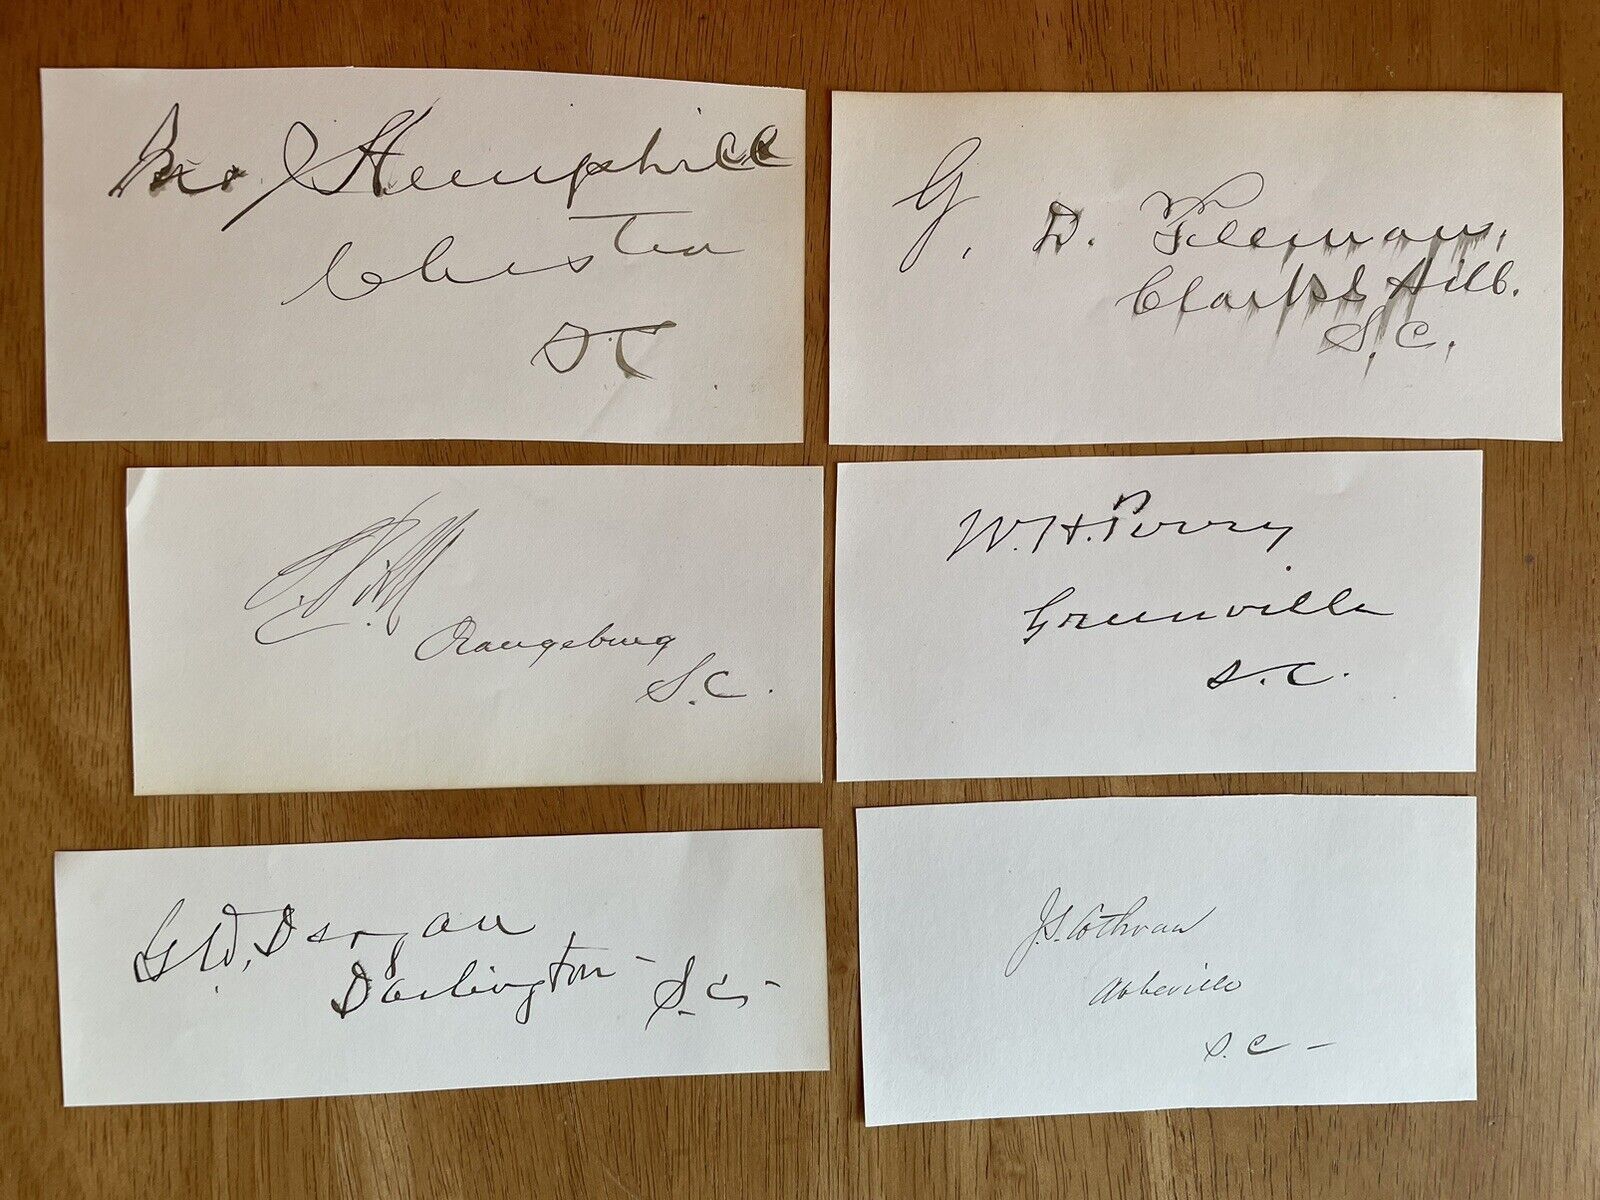 Jno J Hemphill
Chester
S.C
G. D. Tillman,
Clarks Hill.
S.C.
Orangeburg
S.C.
W.H. Perry
Greenville
S.C.
G W. Dargan
Darlington - S.C. -
J.S. Cothran
Abbeville
S.C -